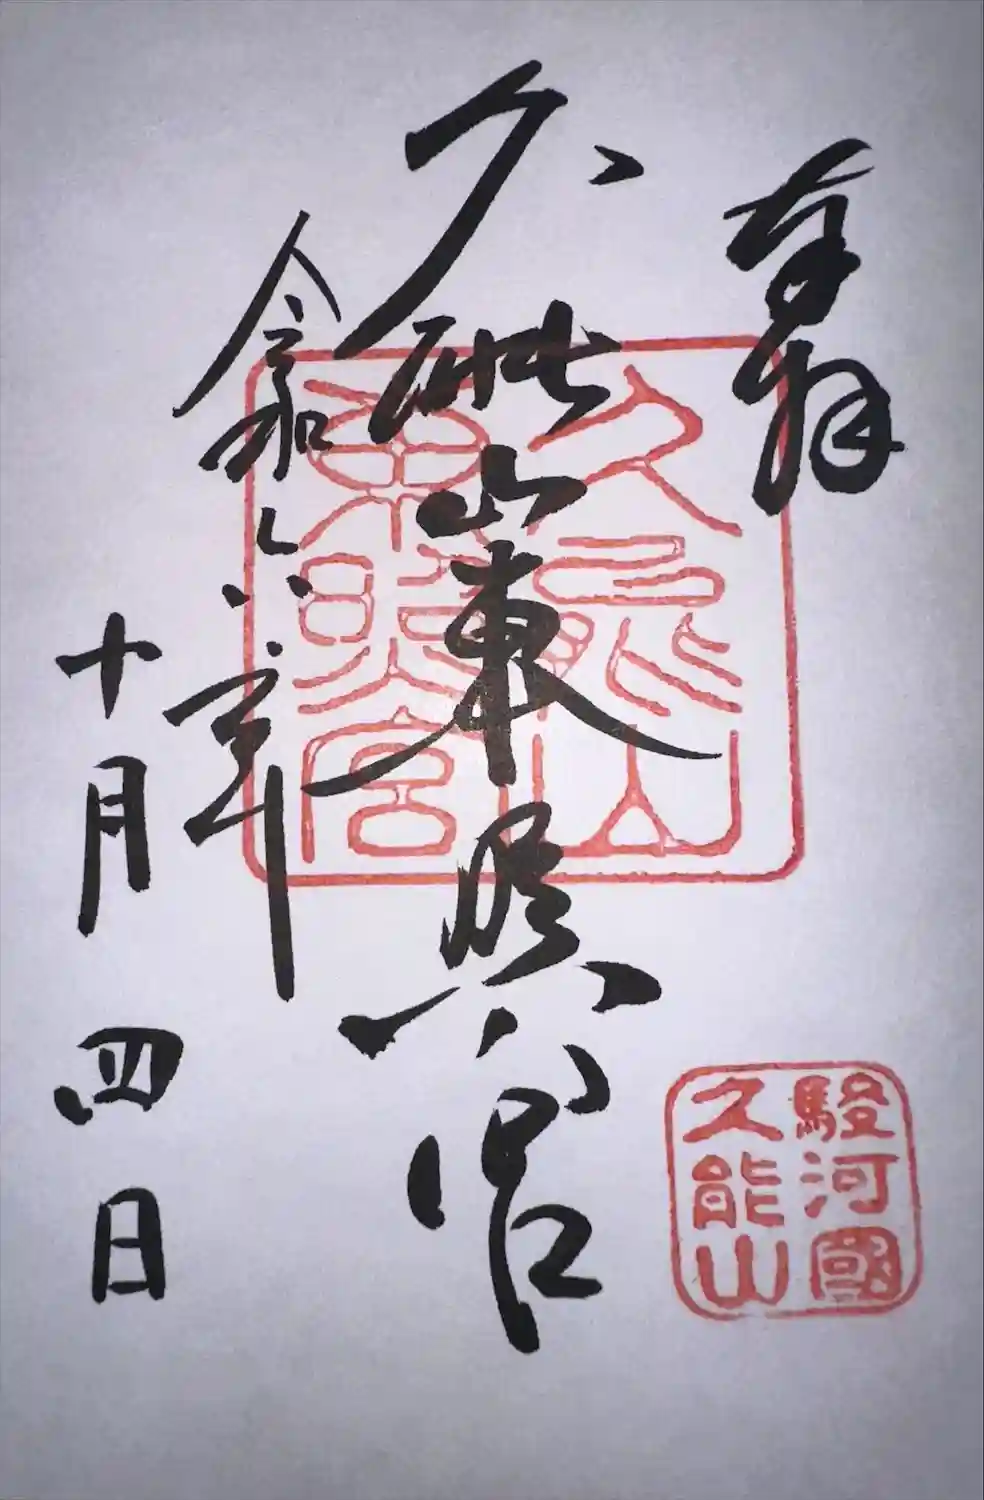 奉拝
久能山東照宮
令和六年
十月四日
久能山
東照宮
駿河國
久能山